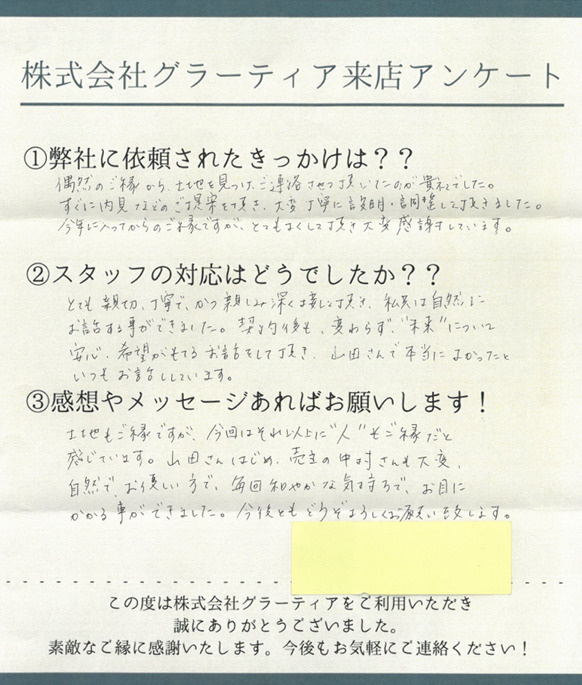 株式会社グラーティア来店アンケート
①弊社に依頼されたきっかけは？？
偶然のご縁から、土地を見つけ、ご連絡させて頂いたのが
すぐに内見などのご提案を頂き、大変丁寧に説明・調整して頂きました。
今年に入ってからのご縁ですが、とてもよくして頂き大変感謝しています。
②スタッフの対応はどうでしたか？？
とても親切、丁寧で、かつ親しみ深く接して頂き、私共は自然に
お話する事ができました。契約後も、変わらず、"未来"について
安心、希望がもてるお話をして頂き、山田さんで本当によかったと
いつもお話ししています。
③感想やメッセージあればお願いします！
土地もご縁ですが、今回はそれ以上に"人"もご縁だと
感じています。山田さんはじめ、売主の中村さんも大変、
自然で、お優しい方で、毎回和やかな気持ちで、お目に
かかる事ができました。今後ともどうぞよろしくお願い致します。
この度は株式会社グラーティアをご利用いただき
誠にありがとうございました。
素敵なご縁に感謝いたします。今後もお気軽にご連絡ください！